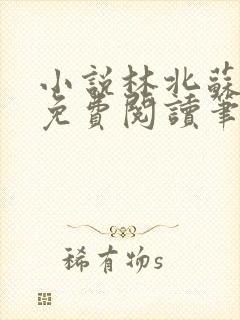 小說林北蘇
免費閱讀筆
稀有物s